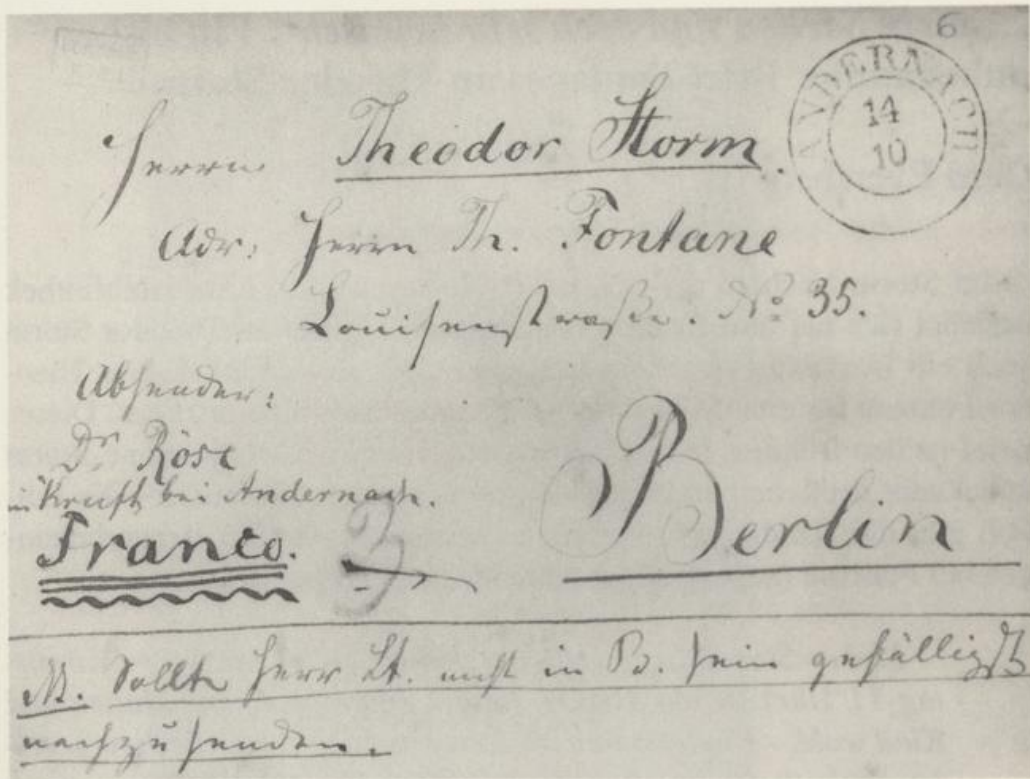 6
ANDERNACH
14
10
Herrn Theodor Storm.
Adr: Herrn Th. Fontane
Louisenstraße. No 35.
Absender:
Dr Röse
in Kruft bei Andernach.
Franco.
3
Berlin
Sollte Herr St. nicht in B. sein gefälligst
nachzusenden.